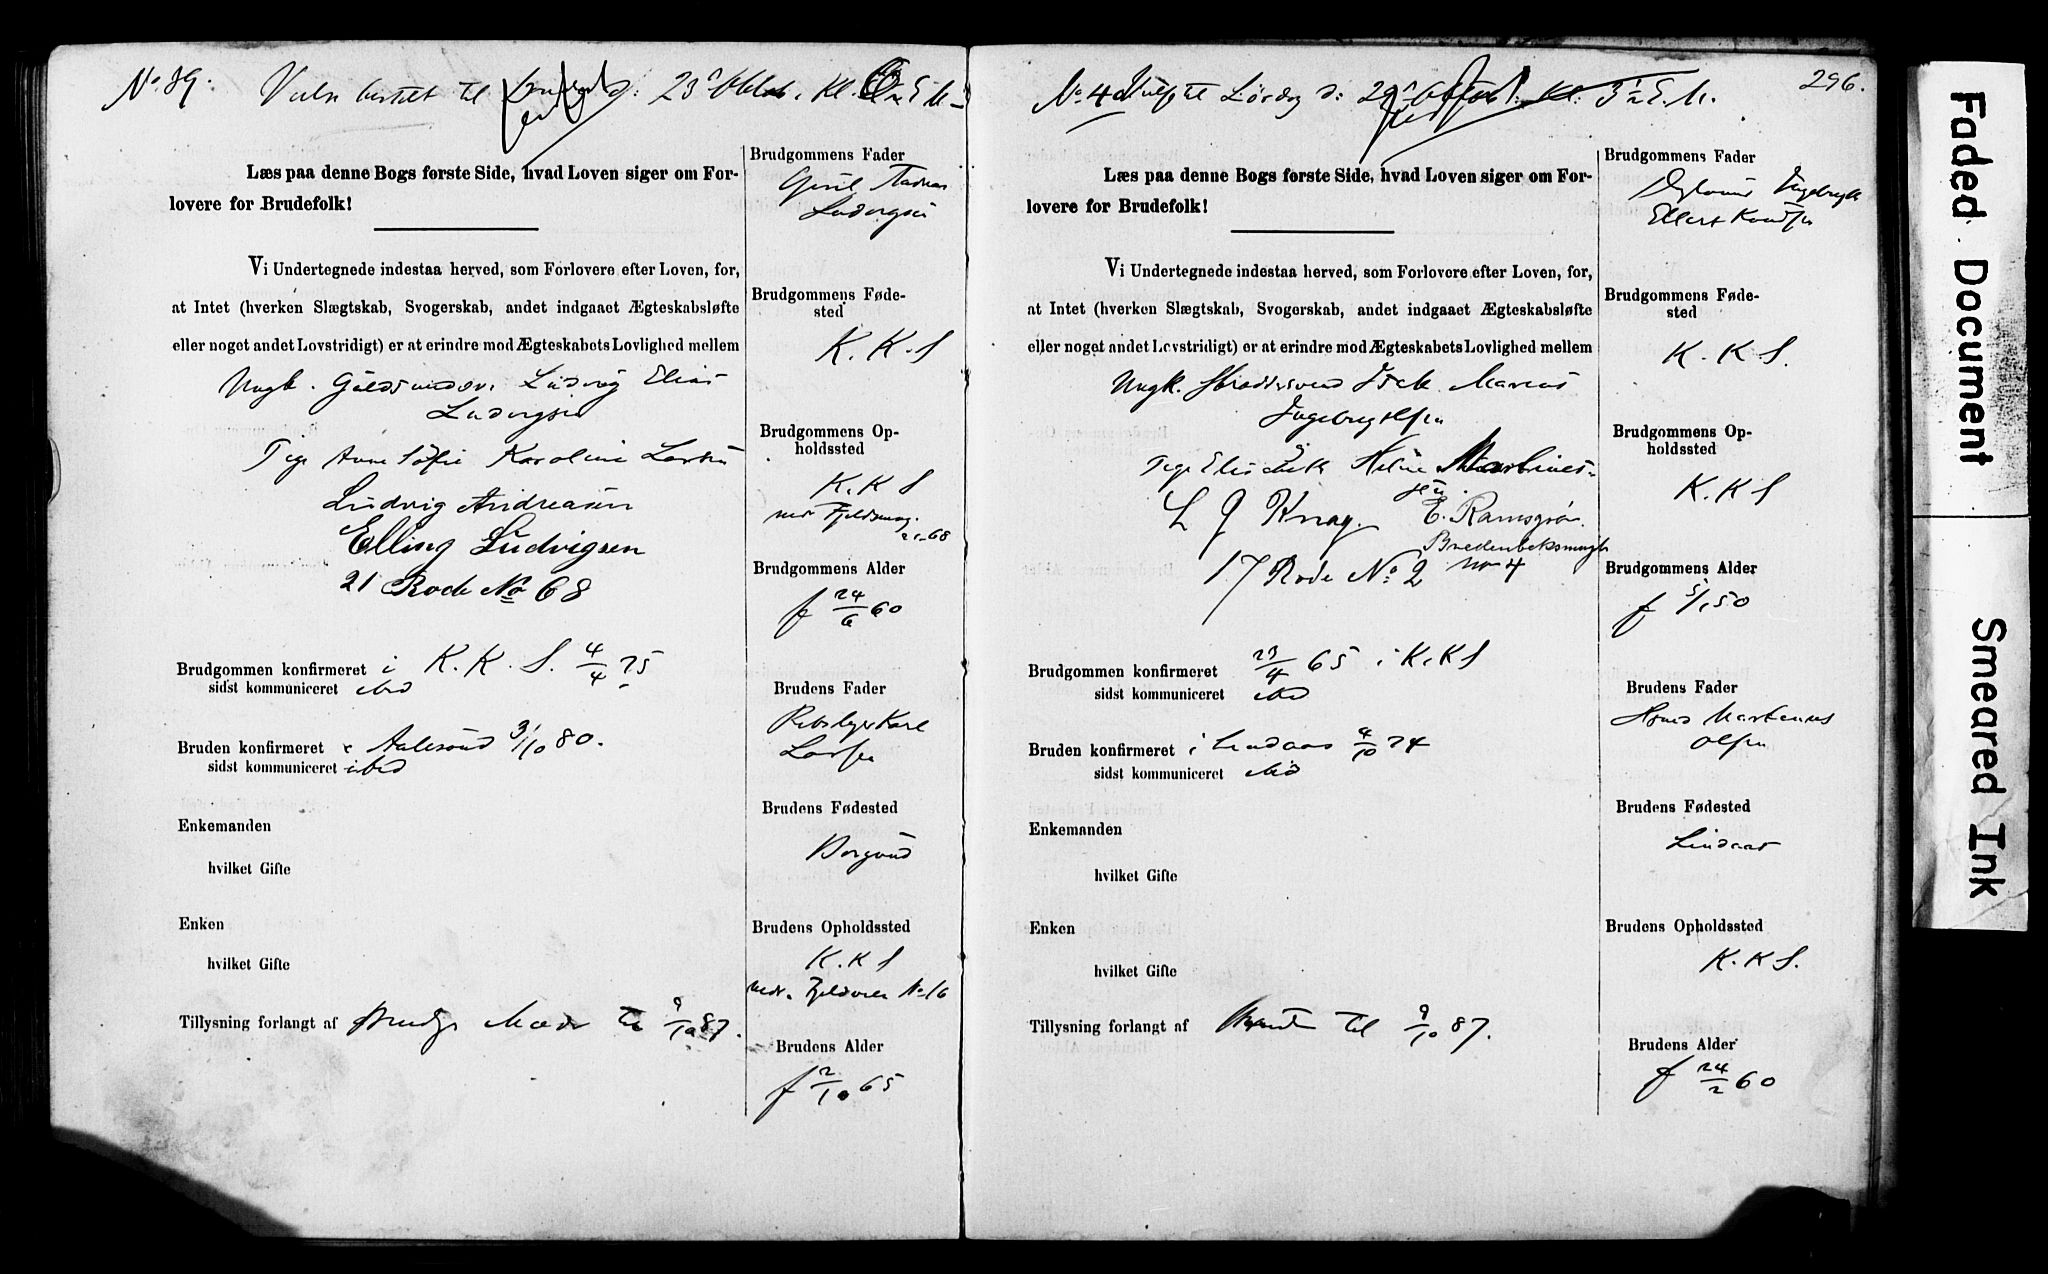 No 89. bestilt til 23 Oktob. Kl. E M
Læs paa denne Bogs første Side, hvad Loven siger om For-
lovere for Brudefolk!
Vi Undertegnede indestaa herved, som Forlovere efter Loven, for,
at Intet (hverken Slægtskab, Svogerskab, andet indgaaet Ægteskabsløfte
eller noget andet Lovstridigt) er at erindre mod Ægteskabets Lovlighed mellem
Ungk. Ludvig Elias
Ludvigsen
Pige Anne Sofie Karoline Larsen
Ludvig Andreasen
Elling Ludvigsen
21 Rode No 68
Brudgommen konfirmeret i K. K. S. 4/4 75
sidst kommuniceret ibid
Bruden konfirmeret i Aalesund 3/10 80.
sidst kommuniceret ibid
Enkemanden
hvilket Gifte
Enken
hvilket Gifte
Tillysning forlangt af Brudg. Moder til 9/10 87.
Brudgommens Fader
Ludvigsen
Brudgommens Føde-
sted
K. K. S
Brudgommens Op-
holdssted
K. K S
21-68
Brudgommens Alder
f 24/6 60
Brudens Fader
Karl
Larsen
Brudens Fødested
Borgund
Brudens Opholdssted
K. K S
No 16
Brudens Alder
f 2/10 65
296.
No 40 til Lørdag d: 29 Oktob. Kl: 3 1/2 E. M.
Læs paa denne Bogs første Side, hvad Loven siger om For-
lovere for Brudefolk!
Vi Undertegnede indestaa herved, som Forlovere efter Loven, for,
at Intet (hverken Slægtskab, Svogerskab, andet indgaaet Ægteskabsløfte
eller noget andet Lovstridigt) er at erindre mod Ægteskabets Lovlighed mellem
Ungk. Skræddersvend Isak Marius
Ingebrigtsen
Pige Elisabeth Heline Martines-
sen.
L J Knag. E. Ramsgrøn.
Bredenbeksmuget
No 4
17 Rode No 2
Brudgommen konfirmeret 23/4 65 i K. K S
sidst kommuniceret ibid
Bruden konfirmeret i Lindaas 4/10 74
sidst kommuniceret ibid
Enkemanden
hvilket Gifte
Enken
hvilket Gifte
Tillysning forlangt af til 9/10 87.
Brudgommens Fader
Ingebrigt
Ellert Knudsen
Brudgommens Føde-
sted
K. K S.
Brudgommens Op-
holdssted
K. K S
Brudgommens Alder
f 5/1 50
Brudens Fader
Hans Martinus
Olsen
Brudens Fødested
Lindaas
Brudens Opholdssted
K. K S.
Brudens Alder
f 24/2 60
Faded Document
Smeared Ink